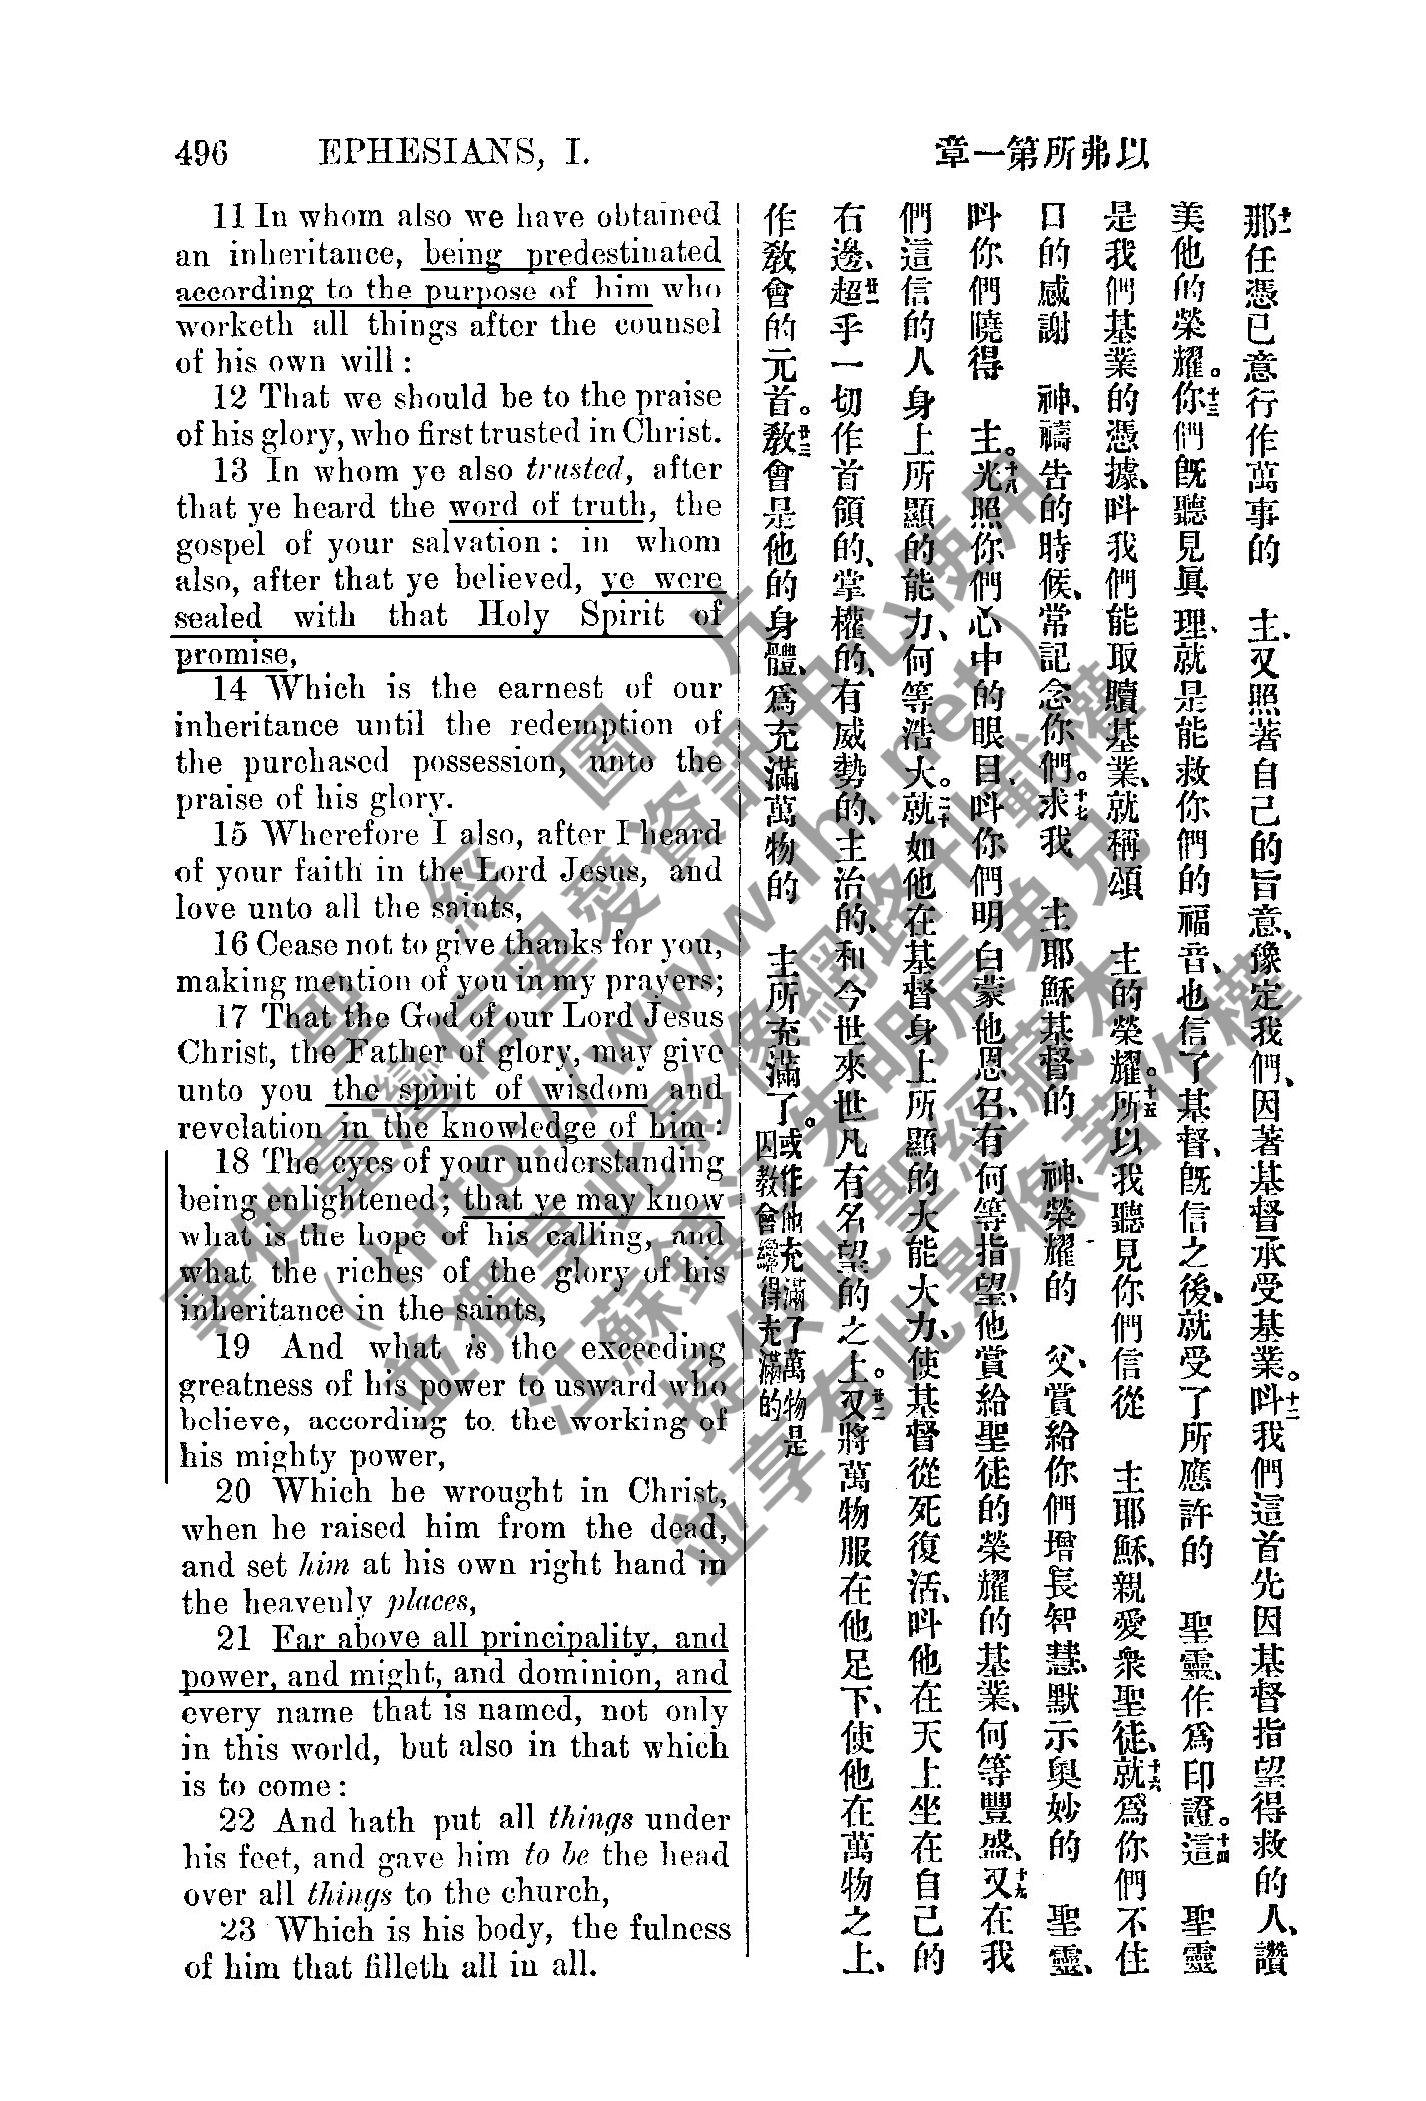 496 EPHESIANS, I.
章一第所弗以
11 In whom also we have obtained
an inheritance, being predestinated
according to the purpose of him who
worketh all things after the counsel
of his own will:
12 That we should be to the praise
of his glory, who first trusted in Christ.
13 In whom ye also trusted, after
that ye heard the word of truth, the
gospel of your salvation: in whom
also, after that ye believed, ye were
sealed with that Holy Spirit of
promise,
14 Which is the earnest of our
inheritance until the redemption of
the purchased possession, unto the
praise of his glory.
15 Wherefore I also, after I heard
of your faith in the Lord Jesus, and
love unto all the saints,
16 Cease not to give thanks for you,
making mention of you in my prayers;
17 That the God of our Lord Jesus
Christ, the Father of glory, may give
unto you the spirit of wisdom and
revelation in the knowledge of him:
18 The eyes of your understanding
being enlightened; that ye may know
what is the hope of his calling, and
what the riches of the glory of his
inheritance in the saints,
19 And what is the exceeding
greatness of his power to usward who
believe, according to the working of
his mighty power,
20 Which he wrought in Christ,
when he raised him from the dead,
and set him at his own right hand in
the heavenly places,
21 Far above all principality, and
power, and might, and dominion, and
every name that is named, not only
in this world, but also in that which
is to come:
22 And hath put all things under
his feet, and gave him to be the head
over all things to the church,
23 Which is his body, the fulness
of him that filleth all in all.
十一那任憑已意行作萬事的 主、又照著自己的旨意、豫定我們、因著基督承受基業。十二呌我們這首先因基督指望得救的人、讚
美他的榮耀。十三你們旣聽見眞理、就是能救你們的福音、也信了基督、旣信之後、就受了所應許的 聖靈、作爲印證。十四這 聖靈
是我們基業的憑據、呌我們能取贖基業、就稱頌 主的榮耀。十五所以我聽見你們信從 主耶穌、親愛衆聖徒、十六就爲你們不住
口的感謝 神、禱告的時候、常記念你們。十七求我 主耶穌基督的 神、榮耀的 父、賞給你們增長智慧、默示奧妙的 聖靈、
呌你們曉得 主。十八光照你們心中的眼目、呌你們明白蒙他恩召、有何等指望、他賞給聖徒的榮耀的基業、何等豐盛、十九又在我
們這信的人身上所顯的能力、何等浩大。二十就如他在基督身上所顯的大能大力、使基督從死復活、呌他在天上坐在自己的
右邊、廿一超乎一切作首領的、掌權的、有威勢的、主治的、和今世來世凡有名望的之上。廿二又將萬物服在他足下、使他在萬物之上、
作教會的元首。廿三教會是他的身體、爲充滿萬物的 主所充滿了。或作他充滿了萬物是因教會纔得充滿的
聖經圖片
專供臺灣信望愛資訊中心使用
(http://www.fhl.net)
並獨享此影像網路刊載權
江蘇鎮江朱明辰弟兄
提供此聖經藏本
並享有此影像著作權